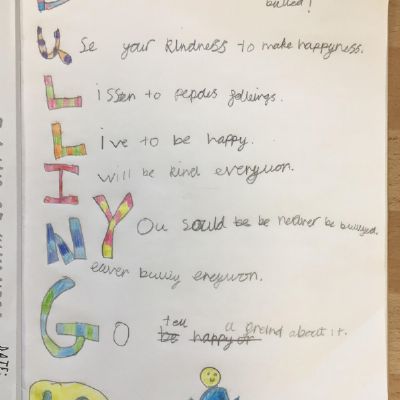 bulled!
Use your kindness to make happyness.
Lissen to peploes feleings.
Live to be happy.
I will be kind everywon.
You sould be be neaver be bullyed.
Neaver bulliy eneywon.
Go be tell happy or a freind about it.
DATE: